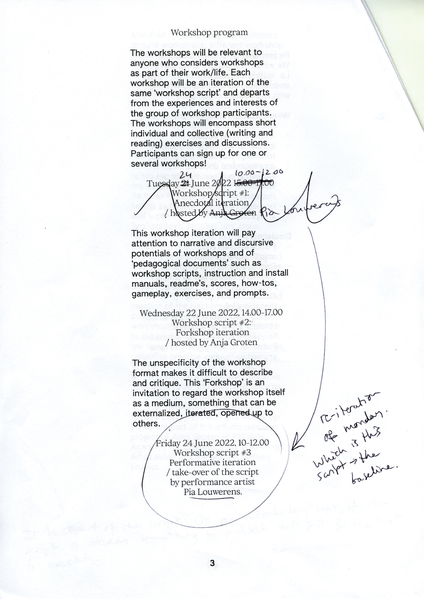 Workshop program
The workshops will be relevant to
anyone who considers workshops
as part of their work/life. Each
workshop will be an iteration of the
same 'workshop script' and departs
from the experiences and interests of
the group of workshop participants.
The workshops will encompass short
individual and collective (writing and
reading) exercises and discussions.
Participants can sign up for one or
several workshops!
24 10.00-12.00
Tuesday 21 June 2022 15.00-17.00
Workshop script #1:
Anecdotal iteration
/ hosted by Anja Groten Pia Louwerens
This workshop iteration will pay
attention to narrative and discursive
potentials of workshops and of
'pedagogical documents' such as
workshop scripts, instruction and install
manuals, readme's, scores, how-tos,
gameplay, exercises, and prompts.
Wednesday 22 June 2022, 14.00-17.00
Workshop script #2:
Forkshop iteration
/ hosted by Anja Groten
The unspecificity of the workshop
format makes it difficult to describe
and critique. This 'Forkshop' is an
invitation to regard the workshop itself
as a medium, something that can be
externalized, iterated, opened up to
others.
Friday 24 June 2022, 10-12.00
Workshop script #3
Performative iteration
/ take-over of the script
by performance artist
Pia Louwerens.
re-iteration
of monday.
which is this
script → the
baseline.
3